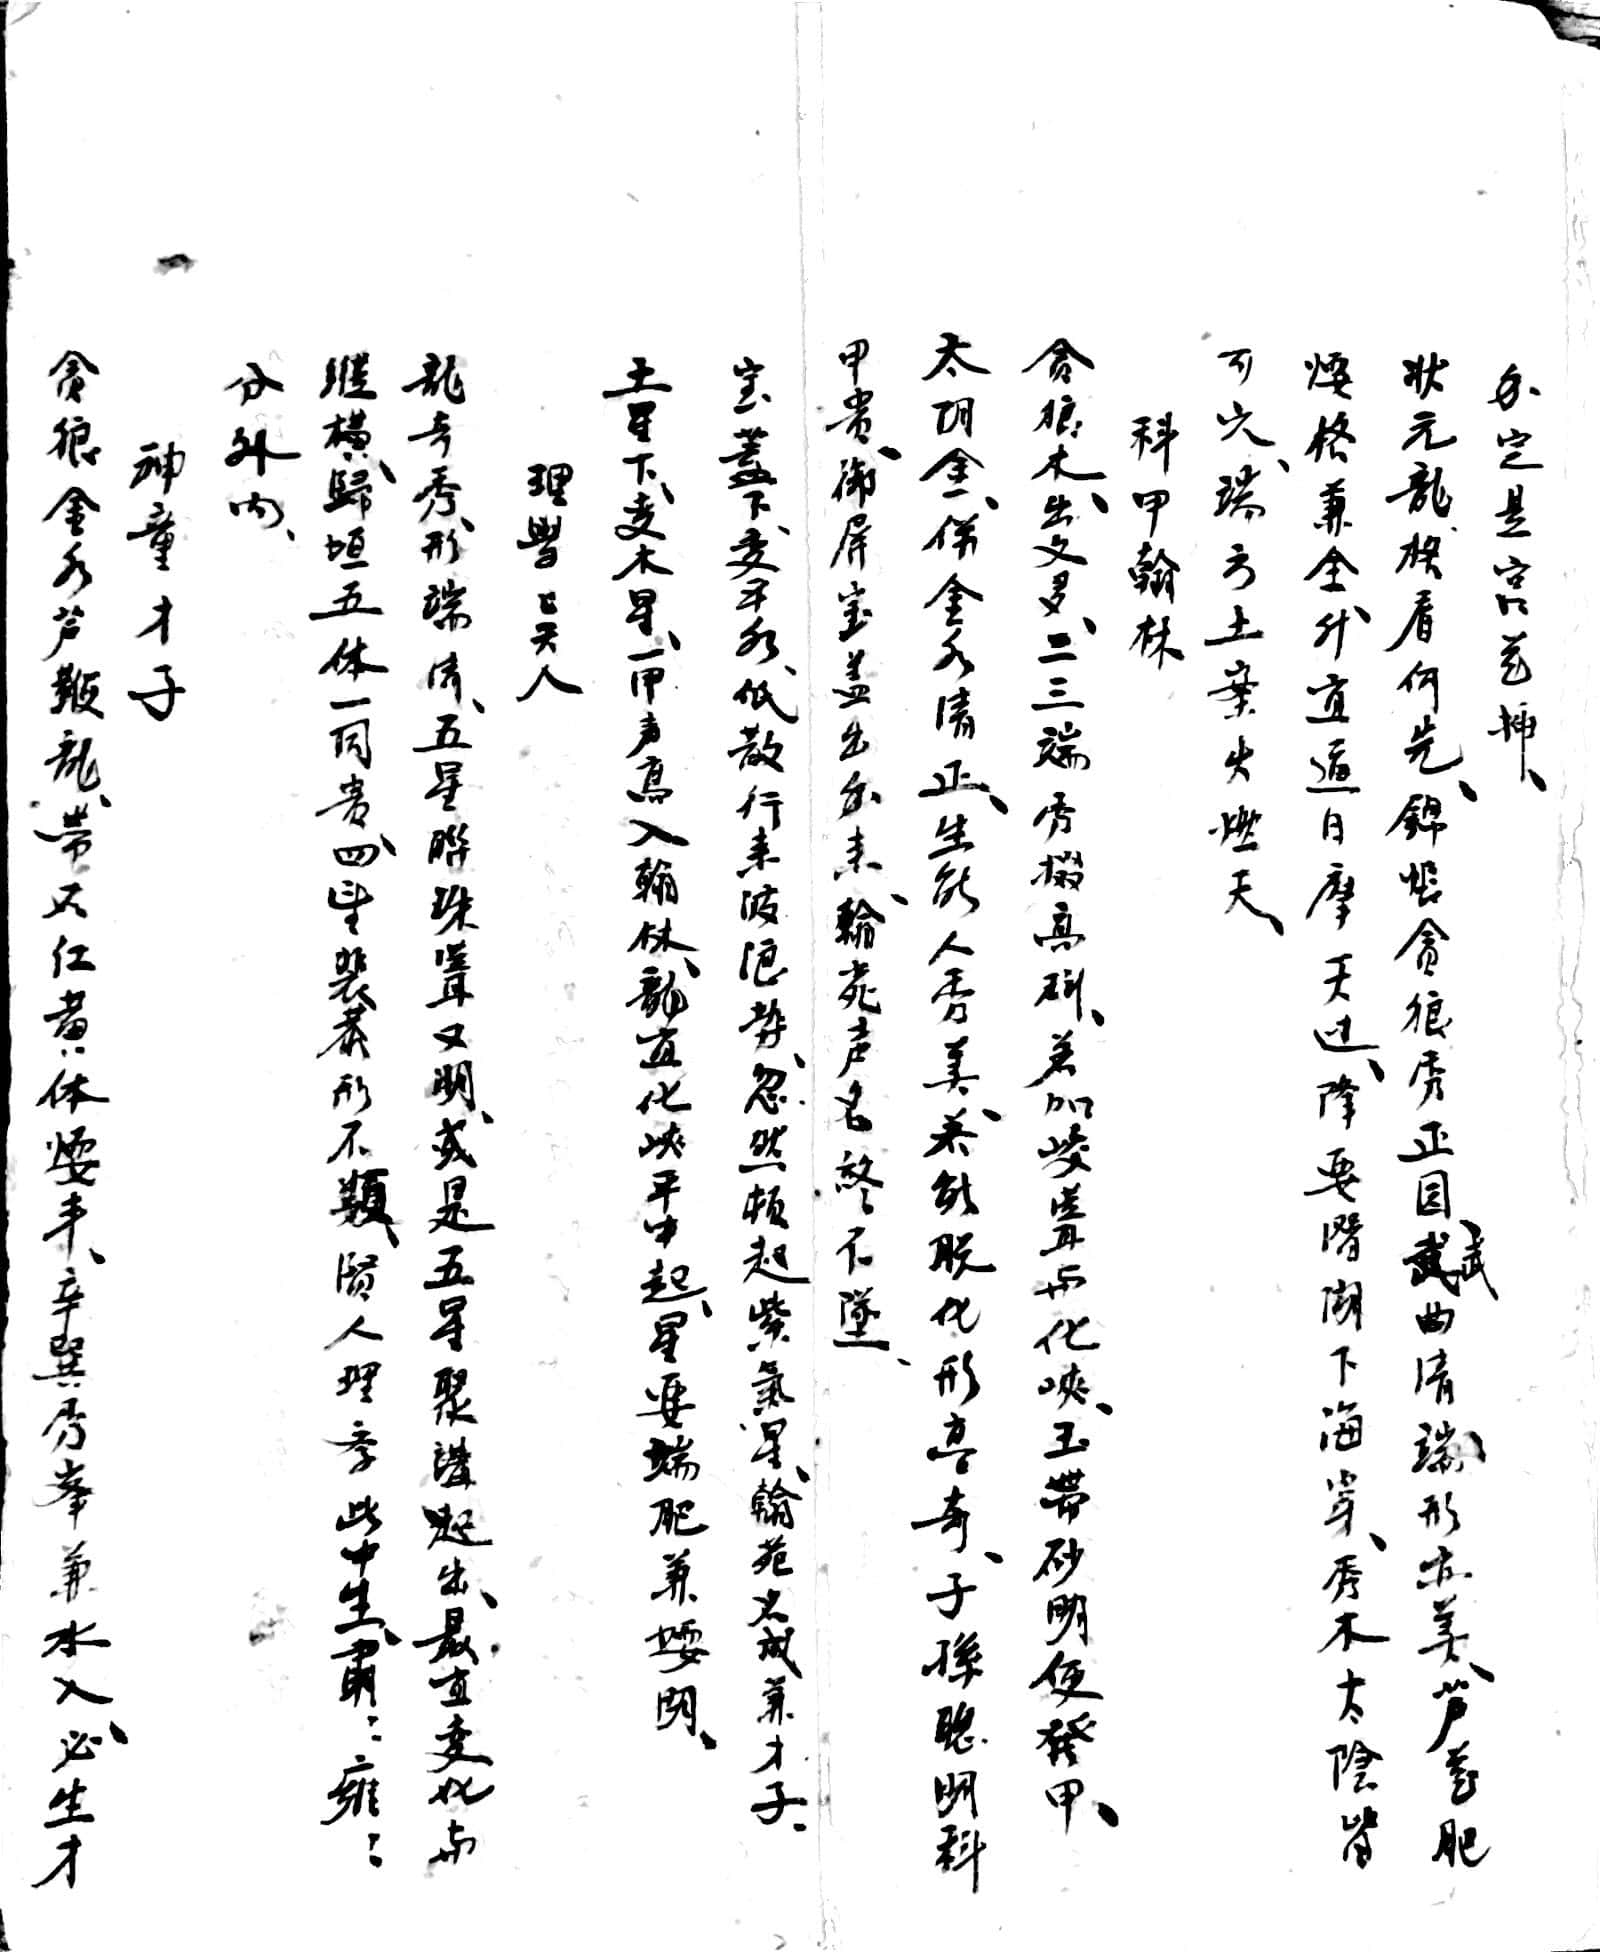 分定是宮花插、
狀元龍格看何先、錦帳貪狼秀正圓、武曲清端形亦美、芦花肥
嫩格兼全、升宜逼日摩天过、降要濶下海穿、秀木太陰皆
可穴、瑞方土案尖燃天、
科甲翰林
貪狼木、出文多、二三端秀掇高科、若加峻聳而化峽、玉帶砂明便發甲、
太阴金、併金水清正、生能人秀美、兼能脱化形尊奇、子孫聰明科
甲貴、御屏宝盖出分来、翰苑声名終不墜、
宝蓋下、变平水、低散行来波浪势、忽然頓起紫氣星、翰苑名成兼才子、
土星下、变木星、一甲声高入翰林、龍宜化峽平中起、星要端肥兼嫩開、
理學王天人
龍奇秀、形端清、五星聯珠聳又明、或是五星聚講起出、最宜变化而
縱橫、歸垣五体一同貴、四望裝恭形不類、賢人理学此中生、肅〻雍〻
分外内、
神童才子
貪狼金水芦鞭龍、帶仁黄体嫩丰、辛巽秀峯兼水入、必生才